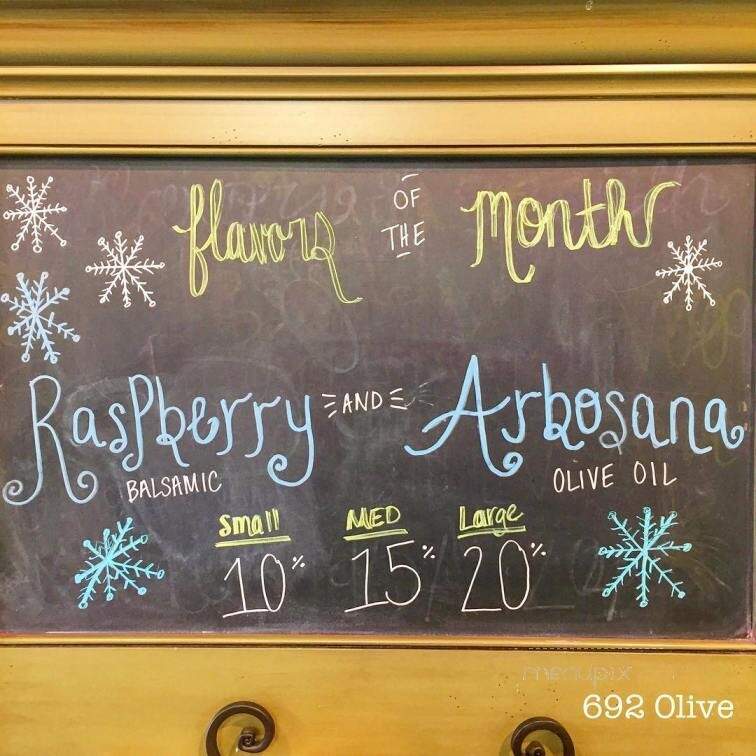 flavors OF THE month
Raspberry AND Arbosana
BALSAMIC OLIVE OIL
small MED Large
10% 15% 20%
menupix
692 Olive